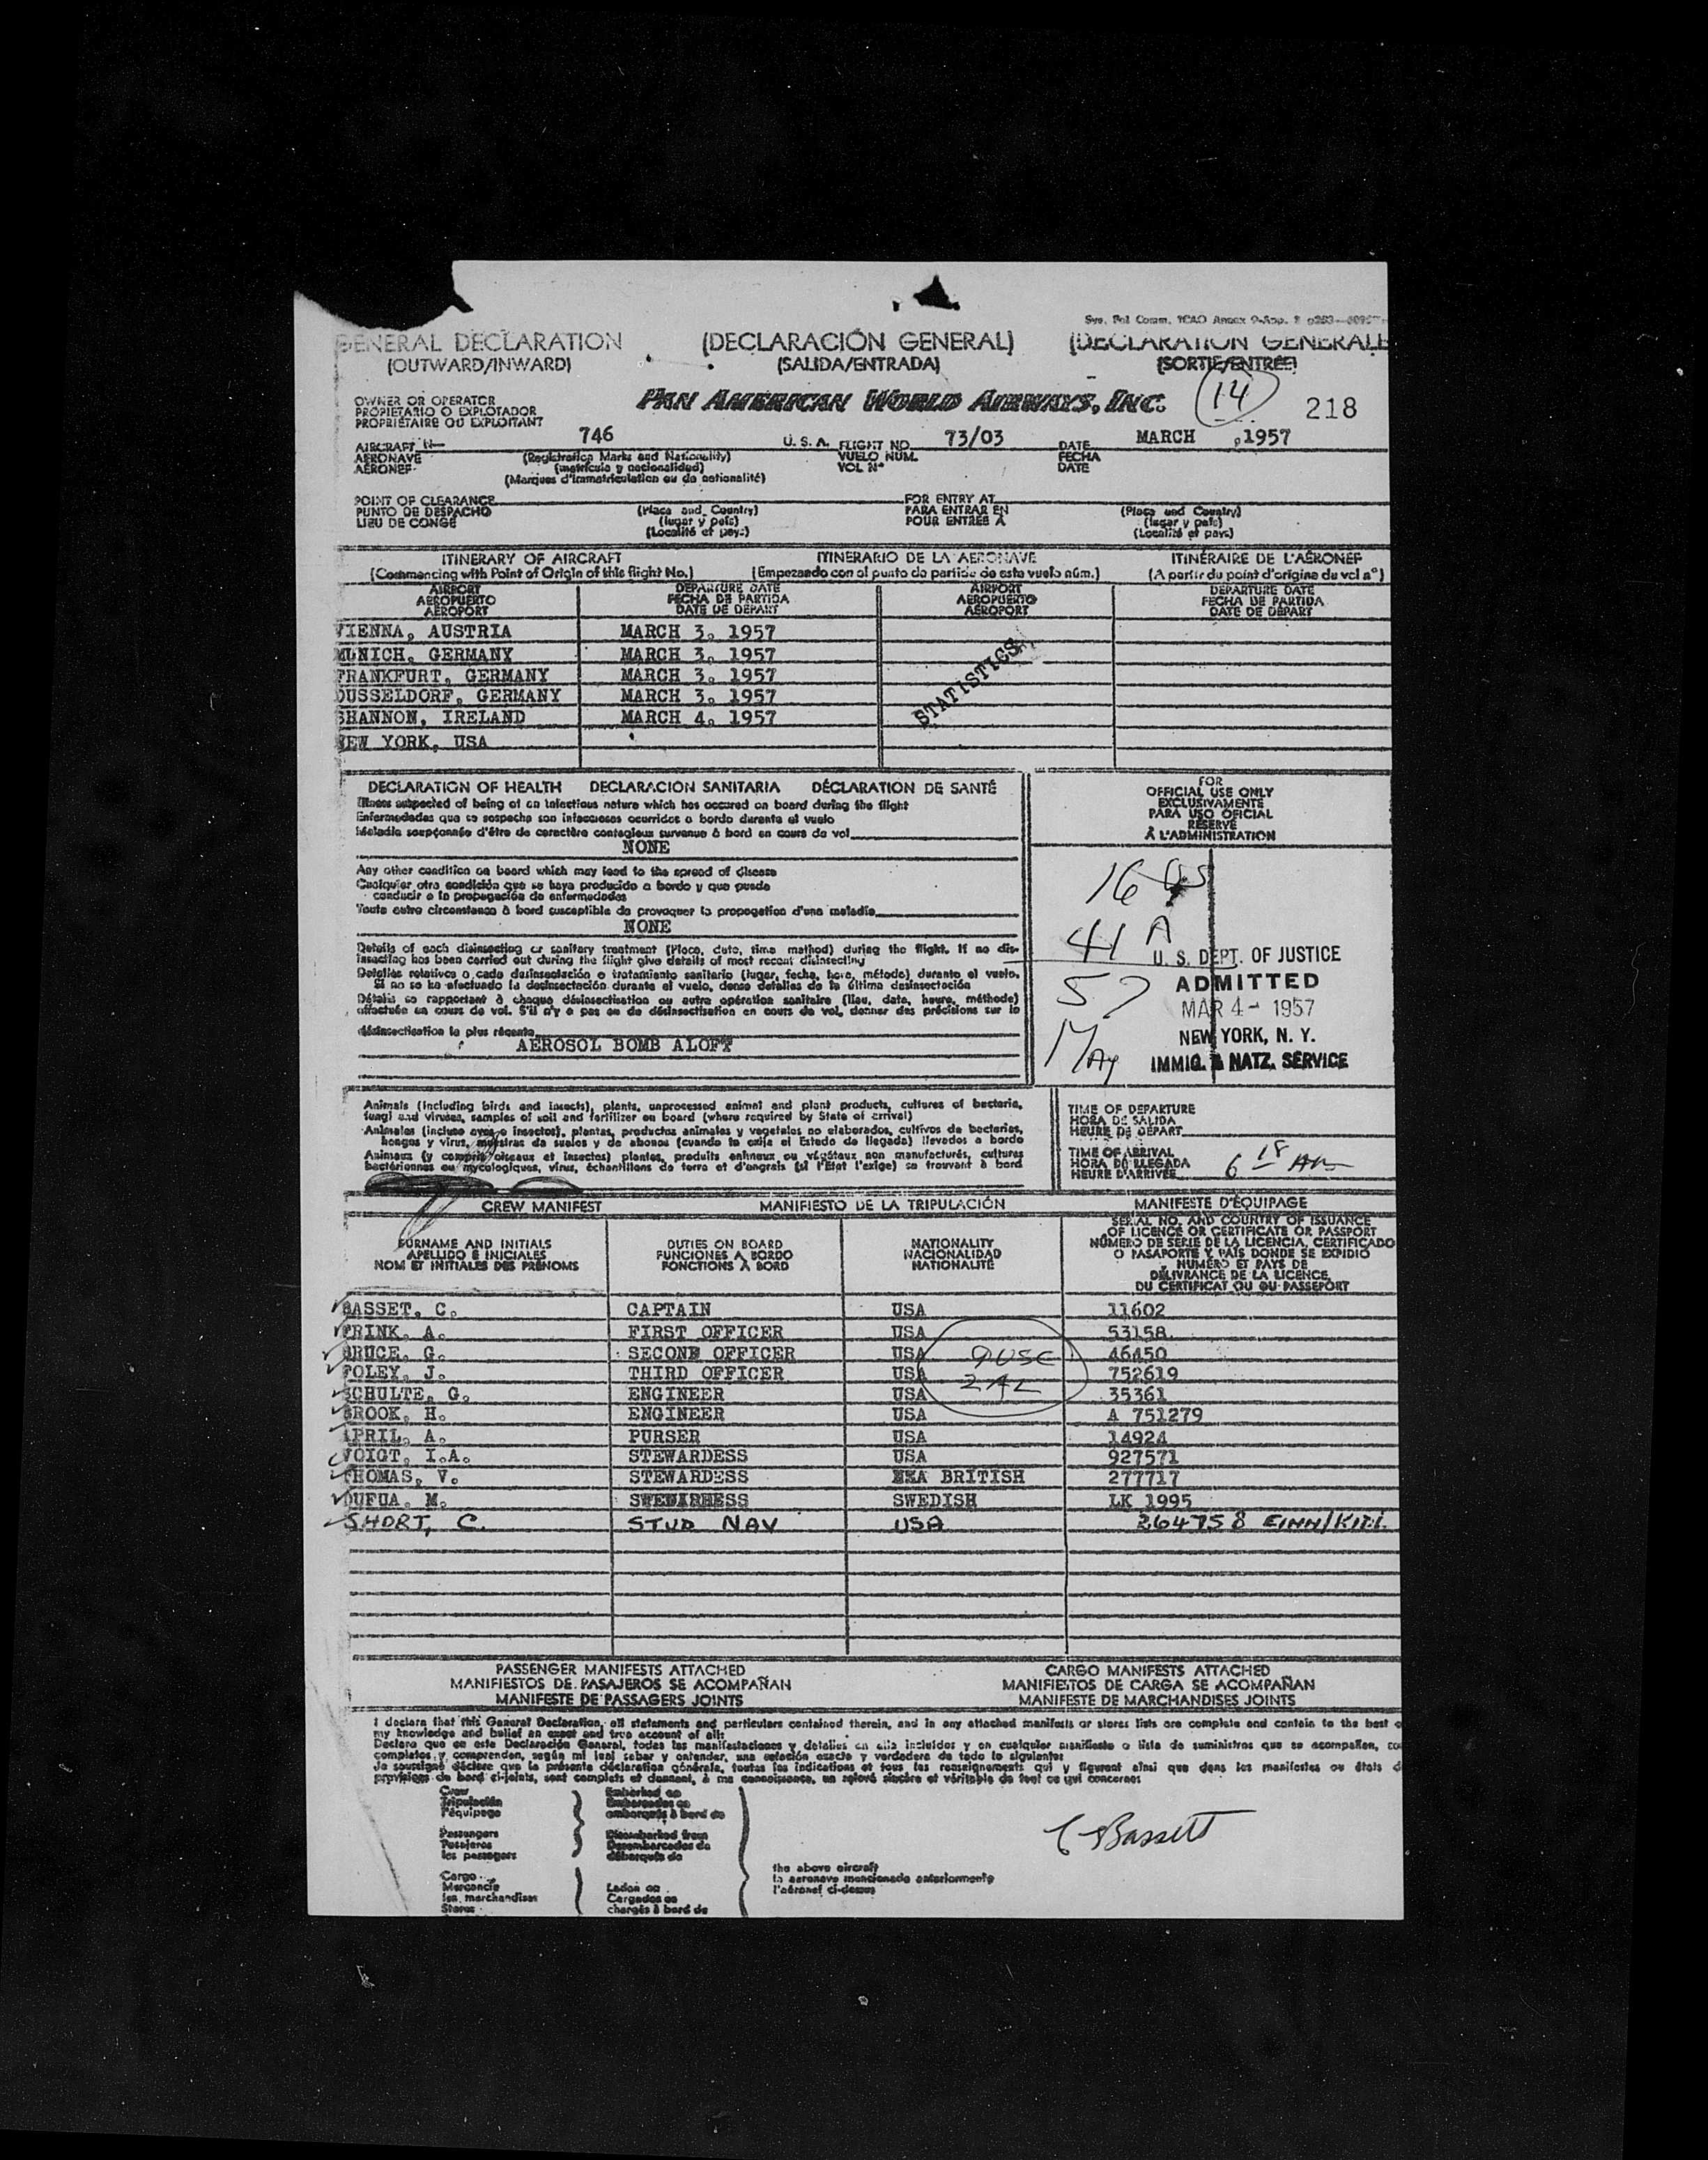 GENERAL DECLARATION (DECLARACIÓN GENERAL) (DÉCLARATION GÉNÉRALE
(OUTWARD/INWARD) (SALIDA/ENTRADA) (SORTIE/ENTRÉE)
OWNER OR OPERATOR
PROPIETARIO O EXPLOTADOR
PROPRIÉTAIRE OU EXPLOITANT
PAN AMERICAN WORLD AIRWAYS, INC. 14 218
AIRCRAFT N— 746 U. S. A. FLIGHT NO. 73/03 DATE MARCH ,1957
AERONAVE (Registration Marks and Nationality) VUELO NÚM. FECHA
AÉRONEF (matrícula y nacionalidad) VOL Nº DATE
(Marques d'immatriculation ou de nationalité)
POINT OF CLEARANCE FOR ENTRY AT
PUNTO DE DESPACHO (Place and Country) PARA ENTRAR EN (Place and Country)
LIEU DE CONGÉ (lugar y país) POUR ENTRÉE À (lugar y país)
(Localité et pays) (Localité et pays)
ITINERARY OF AIRCRAFT ITINERARIO DE LA AERONAVE ITINÉRAIRE DE L'AÉRONEF
(Commencing with Point of Origin of this flight No.) (Empezando con el punto de partida de este vuelo núm.) (A partir du point d'origine du vol nº)
AIRPORT DEPARTURE DATE AIRPORT DEPARTURE DATE
AEROPUERTO FECHA DE PARTIDA AEROPUERTO FECHA DE PARTIDA
AÉROPORT DATE DE DÉPART AÉROPORT DATE DE DÉPART
VIENNA, AUSTRIA MARCH 3, 1957
MUNICH, GERMANY MARCH 3, 1957
FRANKFURT, GERMANY MARCH 3, 1957
DUSSELDORF, GERMANY MARCH 3, 1957
SHANNON, IRELAND MARCH 4, 1957
NEW YORK, USA
STATISTICS
DECLARATION OF HEALTH DECLARACION SANITARIA DÉCLARATION DE SANTÉ
Illness suspected of being of an infectious nature which has occured on board during the flight
Enfermedades que se sospecha son infecciosas ocurridos a bordo durante el vuelo
Maladie soupçonnée d'être de caractère contagieux survenue à bord en cours de vol
NONE
Any other condition on board which may lead to the spread of disease
Cualquier otra condición que se haya producido a bordo y que pueda
conducir a la propagación de enfermedades
Toute autre circonstance à bord susceptible de provoquer la propagation d'une maladie
NONE
Details of each disinsecting or sanitary treatment (Place, date, time method) during the flight. If no dis-
insecting has been carried out during the flight give details of most recent disinsecting
Detalles relativos a cada desinsectación o tratamiento sanitario (lugar, fecha, hora, método) durante el vuelo.
Si no se ha efectuado la desinsectación durante el vuelo, dense detalles de la última desinsectación
Détails se rapportant à chaque désinsectisation ou autre opération sanitaire (lieu, date, heure, méthode)
effectuée en cours de vol. S'il n'y a pas eu de désinsectisation en cours de vol, donner des précisions sur la
désinsectisation la plus récente
AEROSOL BOMB ALOFT
FOR
OFFICIAL USE ONLY
EXCLUSIVAMENTE
PARA USO OFICIAL
RÉSERVÉ
À L'ADMINISTRATION
16
41 A
57
May
U. S. DEPT. OF JUSTICE
ADMITTED
MAR 4- 1957
NEW YORK, N. Y.
IMMIG. & NATZ. SERVICE
Animals (including birds and insects), plants, unprocessed animal and plant products, cultures of bacteria,
fungi and viruses, samples of soil and fertilizer on board (where required by State of arrival)
Animales (incluso aves e insectos), plantas, productos animales y vegetales no elaborados, cultivos de bacterias,
hongos y virus, muestras de suelos y de abonos (cuando lo exija el Estado de llegada) llevados a bordo
Animaux (y compris oiseaux et insectes) plantes, produits animaux ou végétaux non manufacturés, cultures
bactériennes ou mycologiques, virus, échantillons de terre et d'engrais (si l'Etat l'exige) se trouvant à bord
TIME OF DEPARTURE
HORA DE SALIDA
HEURE DE DÉPART
TIME OF ARRIVAL
HORA DE LLEGADA
HEURE D'ARRIVÉE 6 18 AM
CREW MANIFEST MANIFIESTO DE LA TRIPULACIÓN MANIFESTE D'ÉQUIPAGE
SURNAME AND INITIALS
APELLIDO E INICIALES
NOM ET INITIALES DES PRÉNOMS
DUTIES ON BOARD
FUNCIONES A BORDO
FONCTIONS À BORD
NATIONALITY
NACIONALIDAD
NATIONALITÉ
SERIAL NO. AND COUNTRY OF ISSUANCE
OF LICENCE OR CERTIFICATE OR PASSPORT
NÚMERO DE SERIE DE LA LICENCIA, CERTIFICADO
O PASAPORTE Y PAÍS DONDE SE EXPIDIÓ
NUMÉRO ET PAYS DE
DÉLIVRANCE DE LA LICENCE,
DU CERTIFICAT OU DU PASSEPORT
BASSET, C. CAPTAIN USA 11602
FRINK, A. FIRST OFFICER USA 53158
BRUCE, G. SECOND OFFICER USA 46450
FOLEY, J. THIRD OFFICER USA 752619
SCHULTE, G. ENGINEER USA 35361
BROOK, H. ENGINEER USA A 751279
APRIL, A. PURSER USA 14924
VOIGT, I.A. STEWARDESS USA 927571
THOMAS, V. STEWARDESS BRITISH 277717
DUFUA, M. STEWARDESS SWEDISH LK 1995
SHORT, C. STUD NAV USA 264758 EINN/KIDL
9 USC
2 AL
PASSENGER MANIFESTS ATTACHED CARGO MANIFESTS ATTACHED
MANIFIESTOS DE PASAJEROS SE ACOMPAÑAN MANIFIESTOS DE CARGA SE ACOMPAÑAN
MANIFESTE DE PASSAGERS JOINTS MANIFESTE DE MARCHANDISES JOINTS
I declare that this General Declaration, all statements and particulars contained therein, and in any attached manifests or stores lists are complete and contain to the best o
my knowledge and belief an exact and true account of all:
Declaro que en esta Declaración General, todas las manifestaciones y detalles en ella incluidos y en cualquier manifiesto o lista de suministros que se acompañen, co
completos y comprenden, según mi leal saber y entender, una relación exacta y verdadera de todo lo siguiente:
Je soussigné déclare que la présente déclaration générale, toutes les indications et tous les renseignements qui y figurent ainsi que dans les manifestes ou états d
provisions de bord ci-joints, sont complets et donnent, à ma connaissance, un relevé sincère et véritable de tout ce qui concerne:
Crew
Tripulación
l'équipage
Passengers
Pasajeros
les passagers
Cargo
Mercancía
les marchandises
Stores
Embarked on
Embarcados en
embarqués à bord de
Disembarked from
Desembarcados de
débarqués de
Laden on
Cargados en
chargés à bord de
the above aircraft
la aeronave mencionada anteriormente
l'aéronef ci-dessus
C Bassett